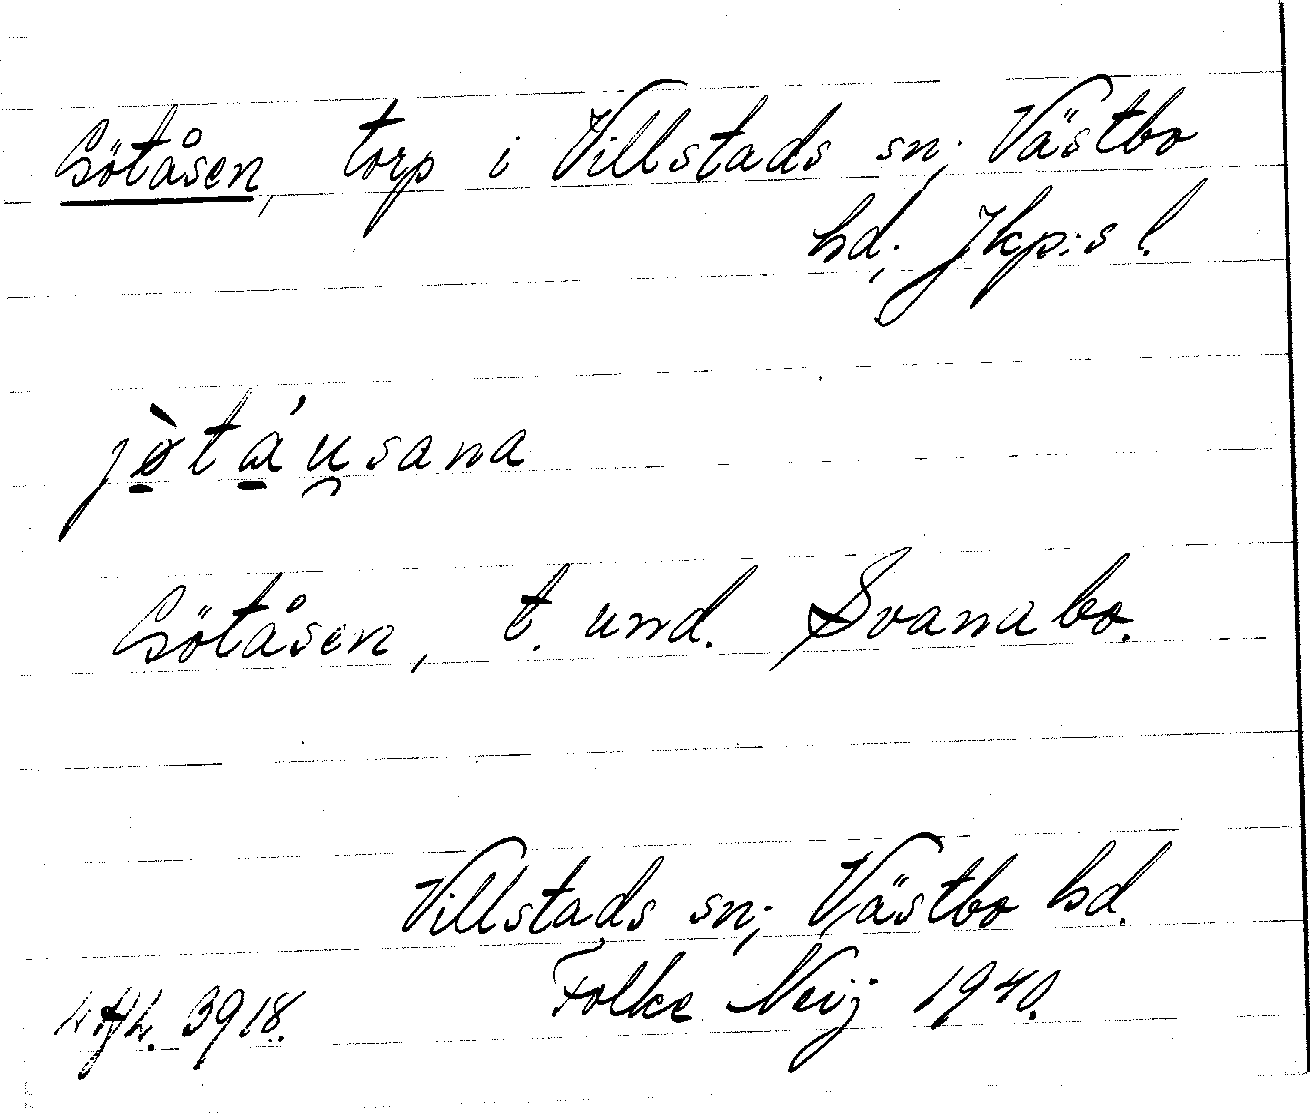 Götåsen, torp i Villstads sn; Västbo
hd; Jkp:s l.
jø̀táu̯sana
Götåsen, t. und. Svanabo.
Villstads sn; Västbo hd.
Folke Neij 1940.
3918.